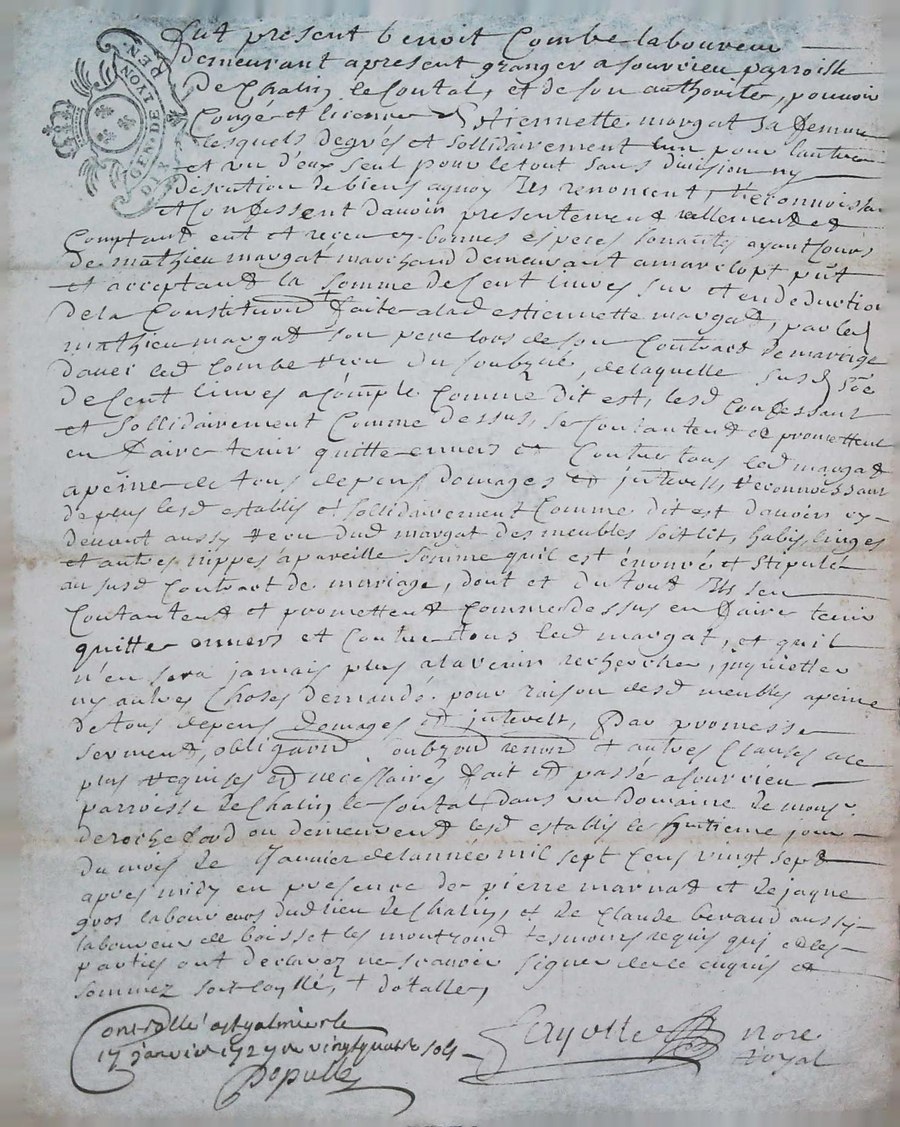 GEN. DE LYON
Fut present benoit Combe laboureur
demeurant apresent granger a souvrieu parroisse
De Chalin le Contal, et de son authorite, pouvoir
Congé et licence Estiennette margat sa femme
lesquels degrés et sollidairement lun pour lautre
et un d'eux seul pour le tout sans division ny
discution de biens aquoy Ils renoncent, reconnoissent
et Confessent davoir presentement reellement et
Comptant eut et receu en bonnes especes sonantes ayant Cours
de mathieu margat marchand demeurant a marclopt pnt
et acceptant la somme de Cent livres sur et en deduction
de la Constitution faite a lad estiennette margat, par led
mathieu margat son pere lors de son Contract de mariage
avec led Combe receu du soubzné, de laquelle susd sôe
de Cent livres a Compte Comme dit est, lesd Confessant
et sollidairement Comme dessus, se Contantent et promettent
en faire tenir quitte envers et Contre tous led margat
apeine de tous depens domages et interests, reconnoissant
de plus lesd establis et sollidairement Comme dit est davoir cy
devant aussy receu dud margat des meubles soit lit, habis, linges
et autres nippes a pareille somme quil est énoncé et stipulée
au susd Contract de mariage, dont et du tout Ils sen
Contantent et promettent Comme dessus en faire tenir
quitte envers et Contre tous led margat, et quil
n'en sera jamais plus alavenir recherché, inquietter
ny autres Choses demandé pour raison desd meubles apeine
de tous depens domages et interests, Par promesse
serment, obligaôns soubzôns renôns et autres Clauses ace
plus requises et necéssaires fait et passé a souvrieu
parroisse de Chalin le Contal dans un domaine de monsr
de rocheford ou demeurent lesd establis le huitieme jour
du mois de Janvier de lannée mil sept Cens vingt sept
apres midy en presence de pierre marinat et de jaque
gros laboureurs dud lieu de Chalin, et de Claude beraud aussy
laboureur de boisset les montrond tesmoins requis qui et les
parties ont declarez ne scavoir signer de ce enquis et
sommez soit
Controllé a st galmier le
17 janvier 1727 vingt quatre sols
Populle
nore
royal